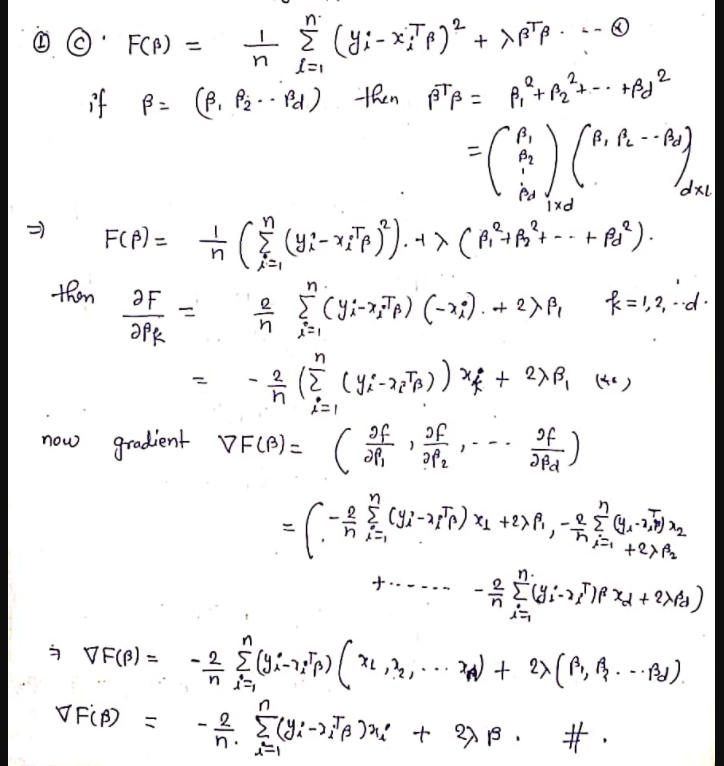 ① ⓒ. F(β) = 1/n Σ_{i=1}^{n} (yi - xi^T β)² + λβ^Tβ. --- ⊗
if β = (β1 β2 -- βd) then β^Tβ = β1² + β2² + -- + βd²
= (β1 β2 ¦ βd)_{1xd} (β1 β2 -- βd)_{dx1}
⇒ F(β) = 1/n (Σ_{i=1}^{n} (yi - xi^T β)²). + λ (β1² + β2² + -- + βd²).
then ∂F/∂βk = 2/n Σ_{i=1}^{n} (yi - xi^T β) (-xi). + 2λβ1 k = 1, 2, --d.
= -2/n (Σ_{i=1}^{n} (yi - xi^T β)) xk + 2λβ1
now gradient ∇F(β) = (∂f/∂β1, ∂f/∂β2, --- ∂f/∂βd)
= (-2/n Σ_{i=1}^{n} (yi - xi^T β) x1 + 2λβ1, -2/n Σ_{i=1}^{n} (yi - xi^T β) x2 + 2λβ2
+ ------ -2/n Σ_{i=1}^{n} (yi - xi^T)β xd + 2λβd)
⇒ ∇F(β) = -2/n Σ_{i=1}^{n} (yi - xi^T β) (x1, x2, ... xd) + 2λ (β1, β2 --- βd).
∇F(β) = -2/n. Σ_{i=1}^{n} (yi - xi^T β) xi + 2λβ. #.